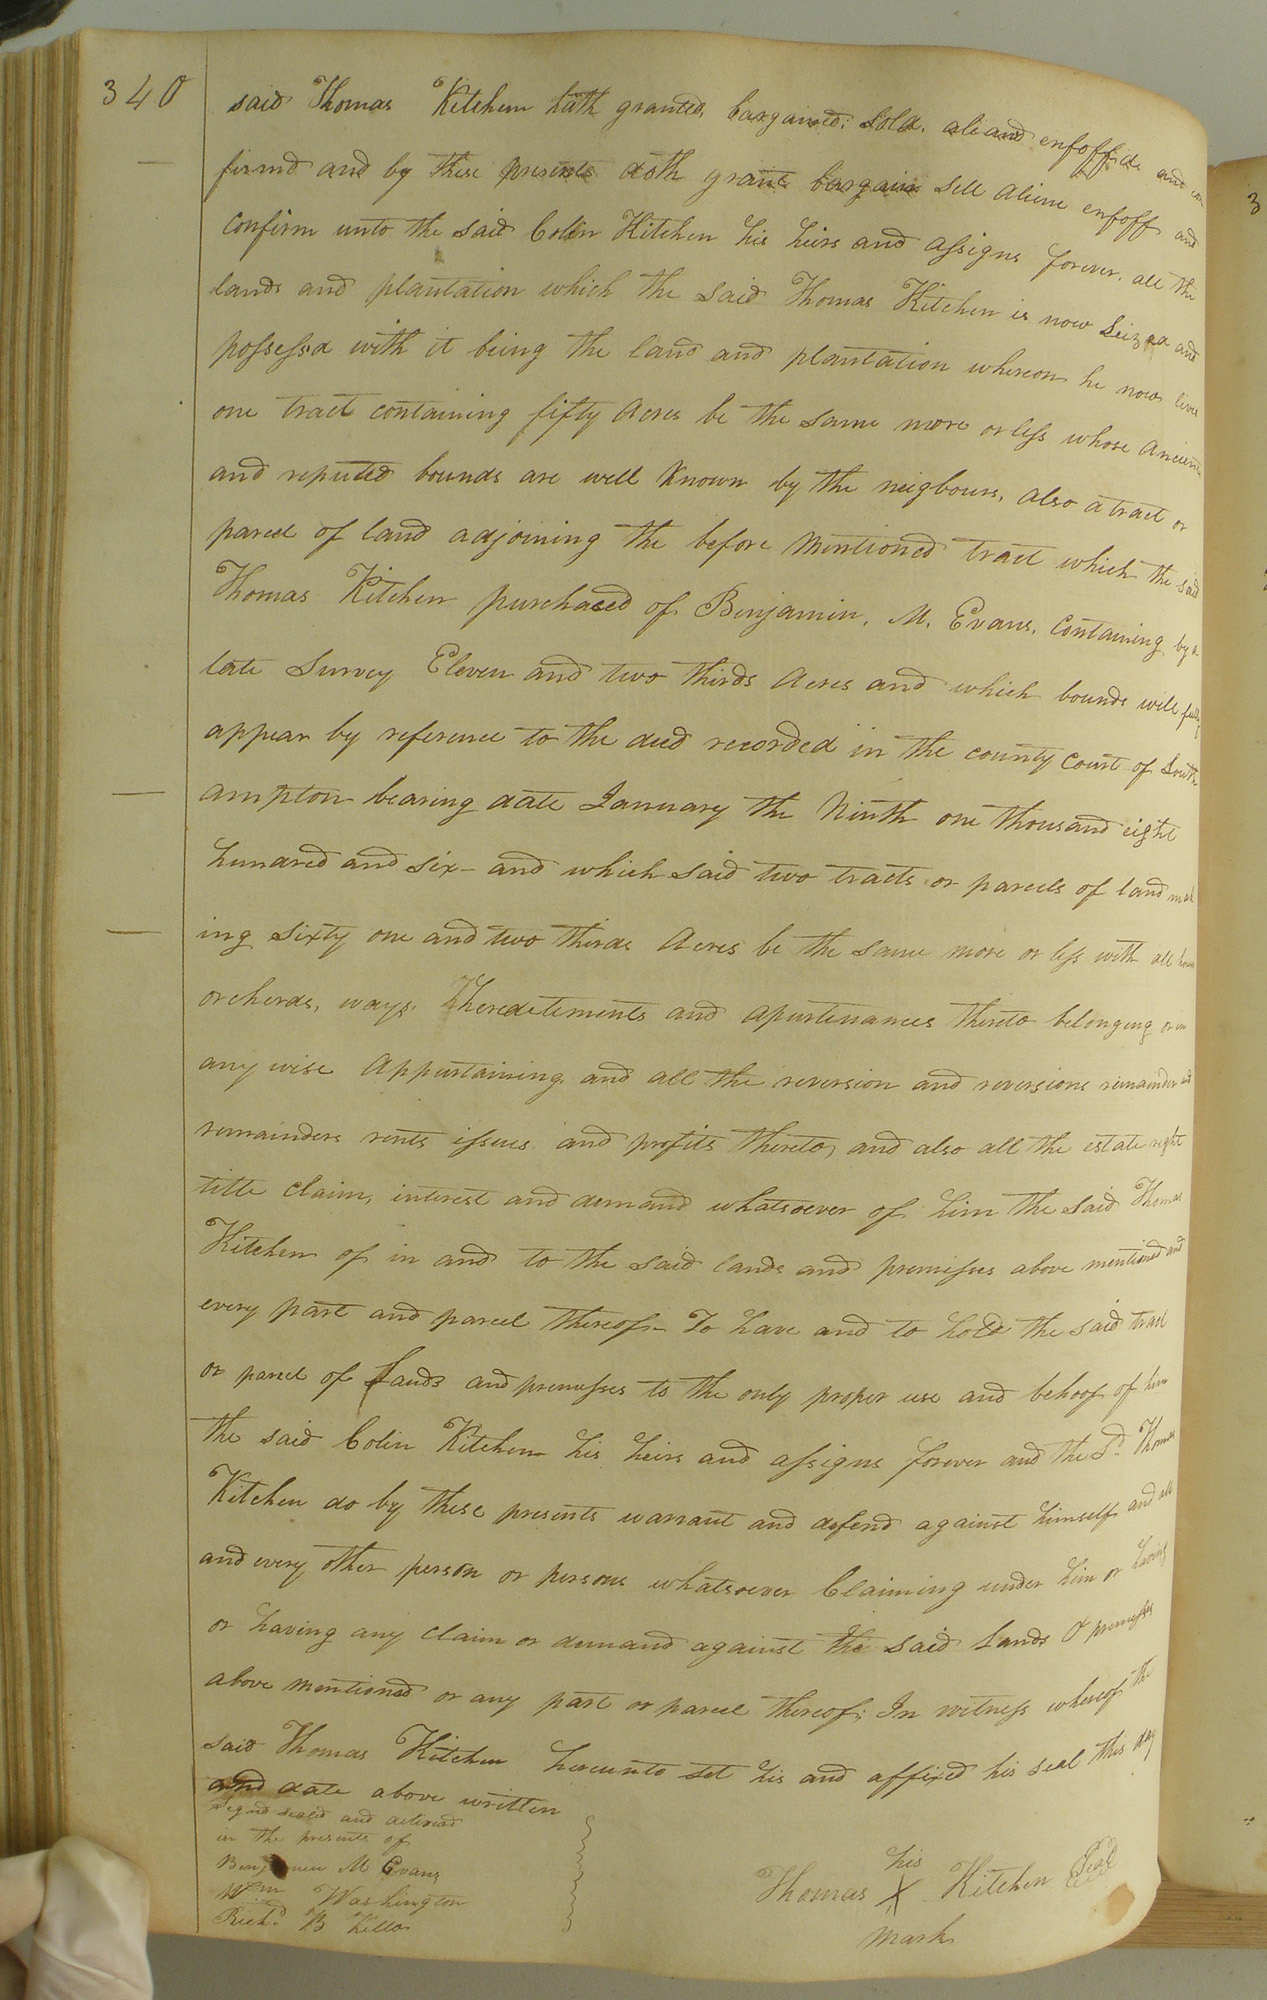 340
said Thomas Kitchen hath granted, bargained; sold. aliand enfoffide and con
firmd and by these presents doth grant bargain Sell aliene enfoff and
confirm unto the said Colin Kitchen his heirs and assigns forever. all the
lands and plantation which the said Thomas Kitchen is now Seized and
possessd with it being the land and plantation whereon he now lives
one tract containing fifty Acres be the same more or less whose Ancient
and reputed bounds are well Known by the neigbours, also a tract or
parcel of land adjoining the before Mentioned tract which the said
Thomas Kitchen purchased of Benjamin. M. Evans. Containing by a
late Survey Eleven and two thirds Acres and which bounds will fully
appear by reference to the deed recorded in the county Court of South
ampton bearing date January the Ninth one thousand eight
hundred and six - and which said two tracts or parcels of land mak
ing sixty one and two thirds Acres be the same more or less with all houses
orcherds, ways, heredetements and apurtenances thereto belonging or in
any wise Appurtaining and all the reversion and reversions remainder and
remainders rents issues and profits thereto, and also all the estate right
title claim, interest and demand whatsoever of him the said Thomas
Kitchen of in and to the said lands and premisses above mentioned and
every part and parcel thereof - To have and to hold the said tract
or parcel of Lands and premisses to the only proper use and behoof of him
the said Colin Kitchen his heirs and assigns forever and the Sd. Thomas
Kitchen do by these presents warrant and defend against himself and all
and every other person or persons whatsoever Claiming under him or having
or having any claim or demand against the said Lands & premisses
above mentioned or any part or parcel thereof; In witness whereof the
said Thomas Kitchen hereunto set his and affixed his seal this day
and date above written
Signd sealed and deliverd
in the presents of
Benjamin M Evans
Wm Washington
Richd. B Kello
his
Thomas X Kitchen Seal
mark
3